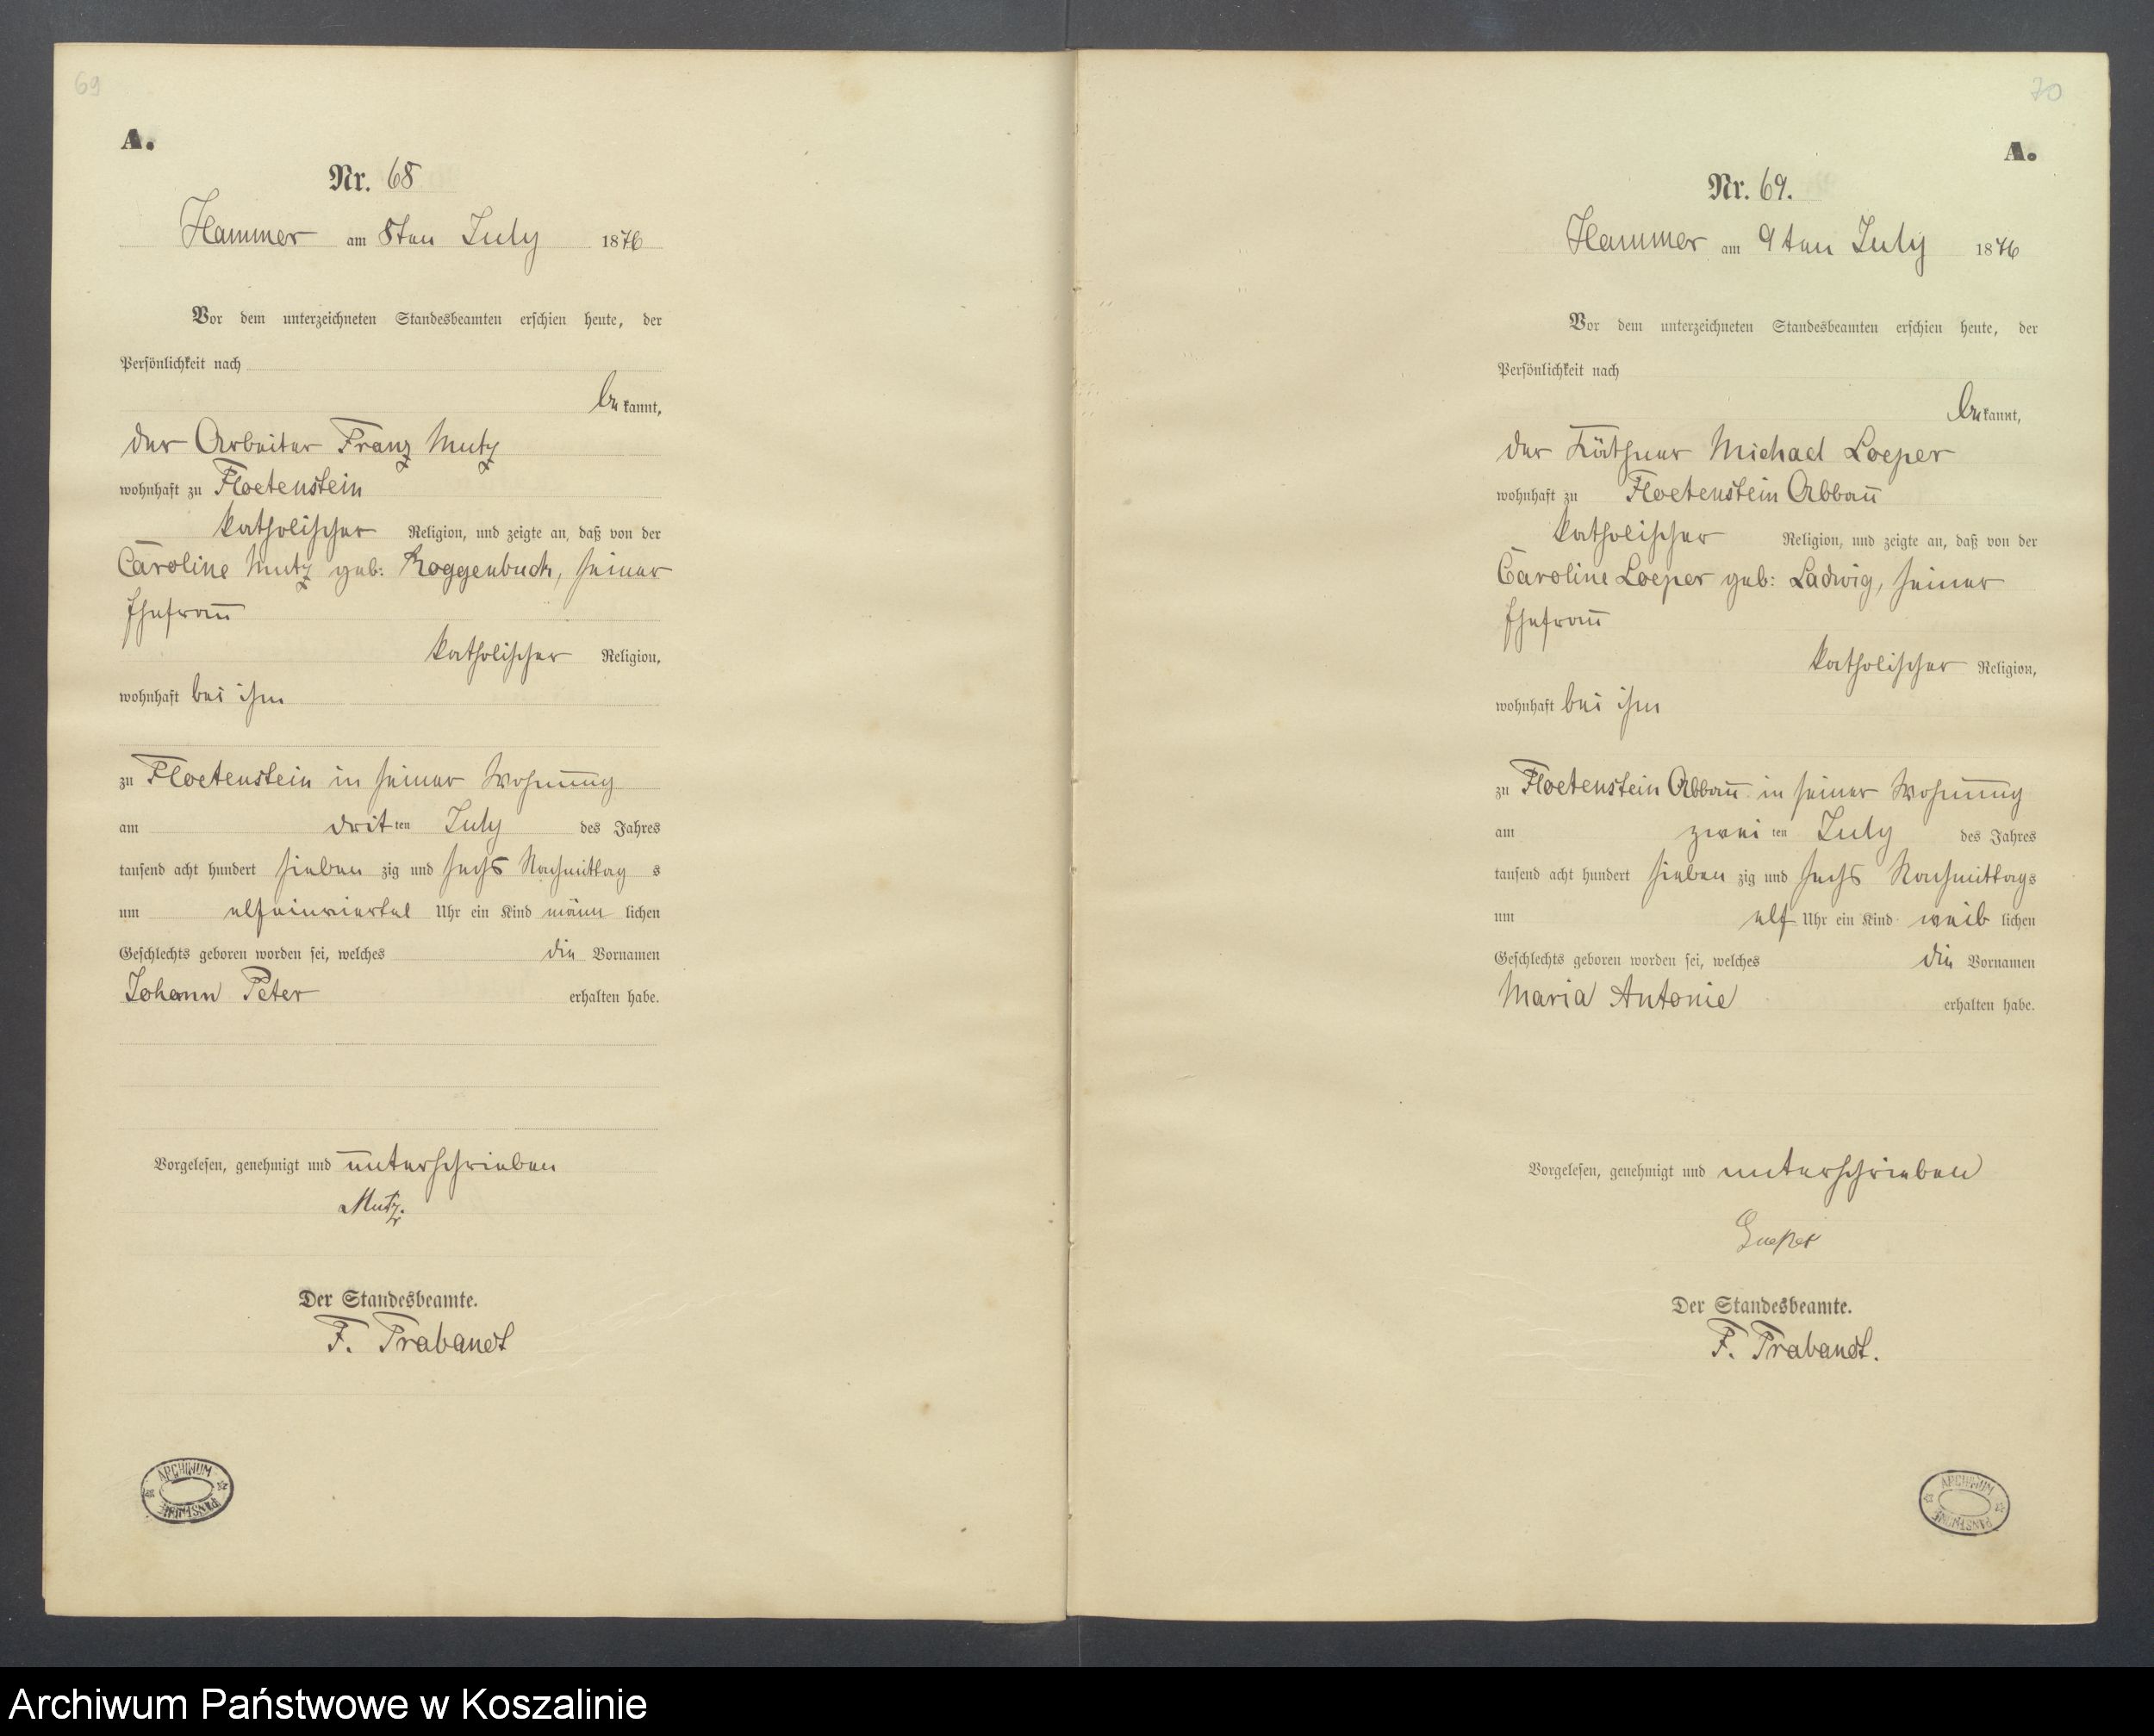 69
A.
Nr. 68
Hammer am 8ten July 1876
Vor dem unterzeichneten Standesbeamten erschien heute, der
Persönlichkeit nach
bekannt,
der Arbeiter Franz Mutz
wohnhaft zu Floetenstein
katholischer Religion, und zeigte an, daß von der
Caroline Mutz geb: Roggenbuch, seiner
Ehefrau
katholischer Religion,
wohnhaft bei ihm
zu Floetenstein in seiner Wohnung
am dritten July des Jahres
tausend acht hundert sieben zig und sechs Nachmittag s
um elfeinviertel Uhr ein Kind männ lichen
Geschlechts geboren worden sei, welches die Vornamen
Johann Peter erhalten habe.
Vorgelesen, genehmigt und unterschrieben
Mutz.
Der Standesbeamte.
F. Trabandt
ARCHIWUM PAŃSTWOWE
70
A.
Nr. 69.
Hammer am 9ten July 1876
Vor dem unterzeichneten Standesbeamten erschien heute, der
Persönlichkeit nach
bekannt,
der Käthner Michael Loeper
wohnhaft zu Floetenstein Abbau
katholischer Religion, und zeigte an, daß von der
Caroline Loeper geb: Ladwig, seiner
Ehefrau
katholischer Religion,
wohnhaft bei ihm
zu Floetenstein Abbau in seiner Wohnung
am zwei ten July des Jahres
tausend acht hundert sieben zig und sechs Nachmittags
um elf Uhr ein Kind weib lichen
Geschlechts geboren worden sei, welches die Vornamen
Maria Antonie erhalten habe.
Vorgelesen, genehmigt und unterschrieben
Der Standesbeamte.
F. Trabandt.
ARCHIWUM PAŃSTWOWE
Archiwum Państwowe w Koszalinie